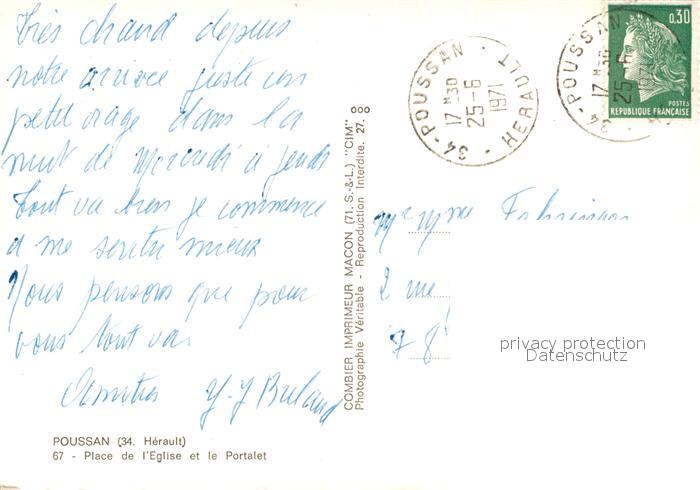 Très chaud depuis
notre arrivée juste un
petit orage dans la
nuit de Mercredi à jeudi
Tout va bien je commence
à me sentir mieux
Nous pensons que pour
vous tout va.
Amitiés Y-J
POUSSAN (34. Hérault)
67 - Place de l'Eglise et le Portalet
COMBIER IMPRIMEUR MACON (71. S.-&-L.) "CIM"
Photographie Véritable - Reproduction Interdite. 27.
34 - POUSSAN · HERAULT ·
17 H 30
25-6
1971
34 - POUSSAN
17 H 30
25-6
0,30
POSTES
REPUBLIQUE FRANÇAISE
2 rue
78
privacy protection
Datenschutz